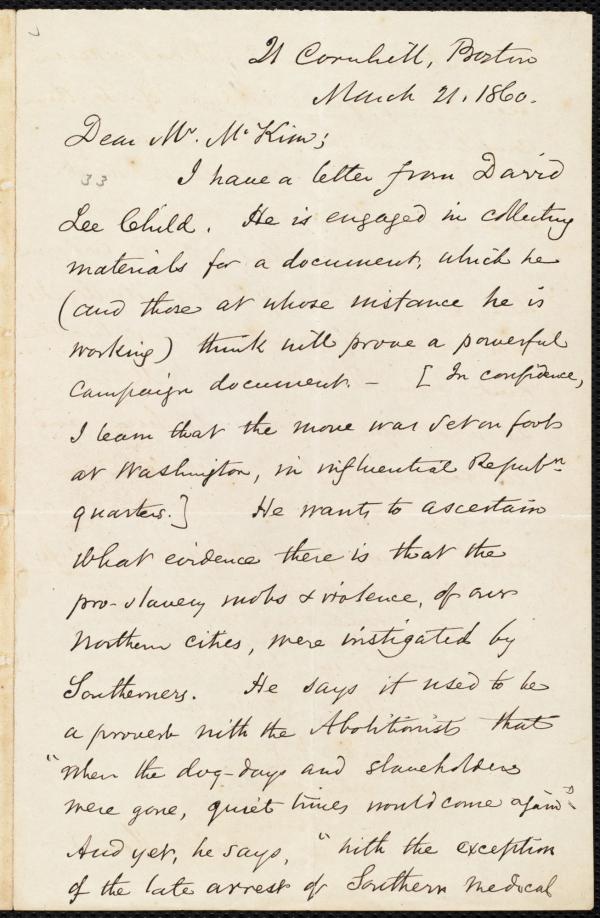 21 Cornhill, Boston
March 21. 1860.
Dear Mr. McKim;
33 I have a letter from David
Lee Child. He is engaged in collecting
materials for a document, which he
(and those at whose instance he is
working) think will prove a powerful
campaign document. — [In confidence,
I learn that the move was set on foot
at Washington, in influential Republn
quarters.] He wants to ascertain
what evidence there is that the
pro-slavery mobs & violence, of our
Northern cities, were instigated by
Southerners. He says it used to be
a proverb with the Abolitionists that
"when the dog-days and slaveholders
were gone, quiet times would come again".
And yet, he says, "with the exception
of the late arrest of Southern medical